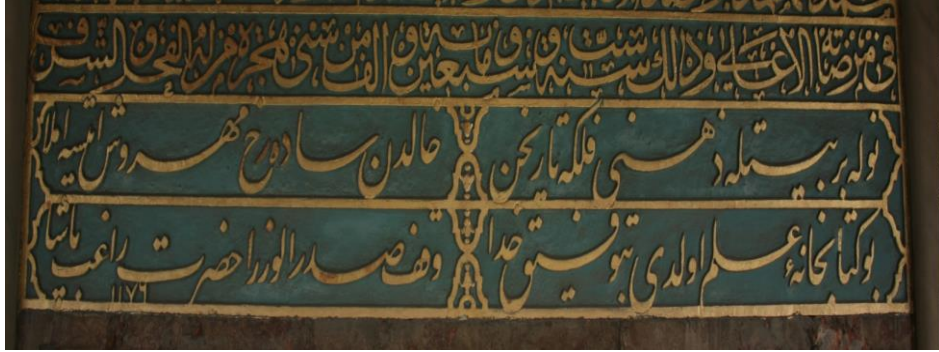 في مرضاته الاعلى وذلك سنة ست وسبعين ومائة والف من سنى هجرة من له والشرف
نوله بر بيتله ذهنى فلكه تاريخن خالدن ساده رخ مهروش ايتسه املا
بو كتابخانهٔ علم اولدى بتوفيق خدا وقف صدر الوزرا حضرت راغب پاشا
١١٧٦